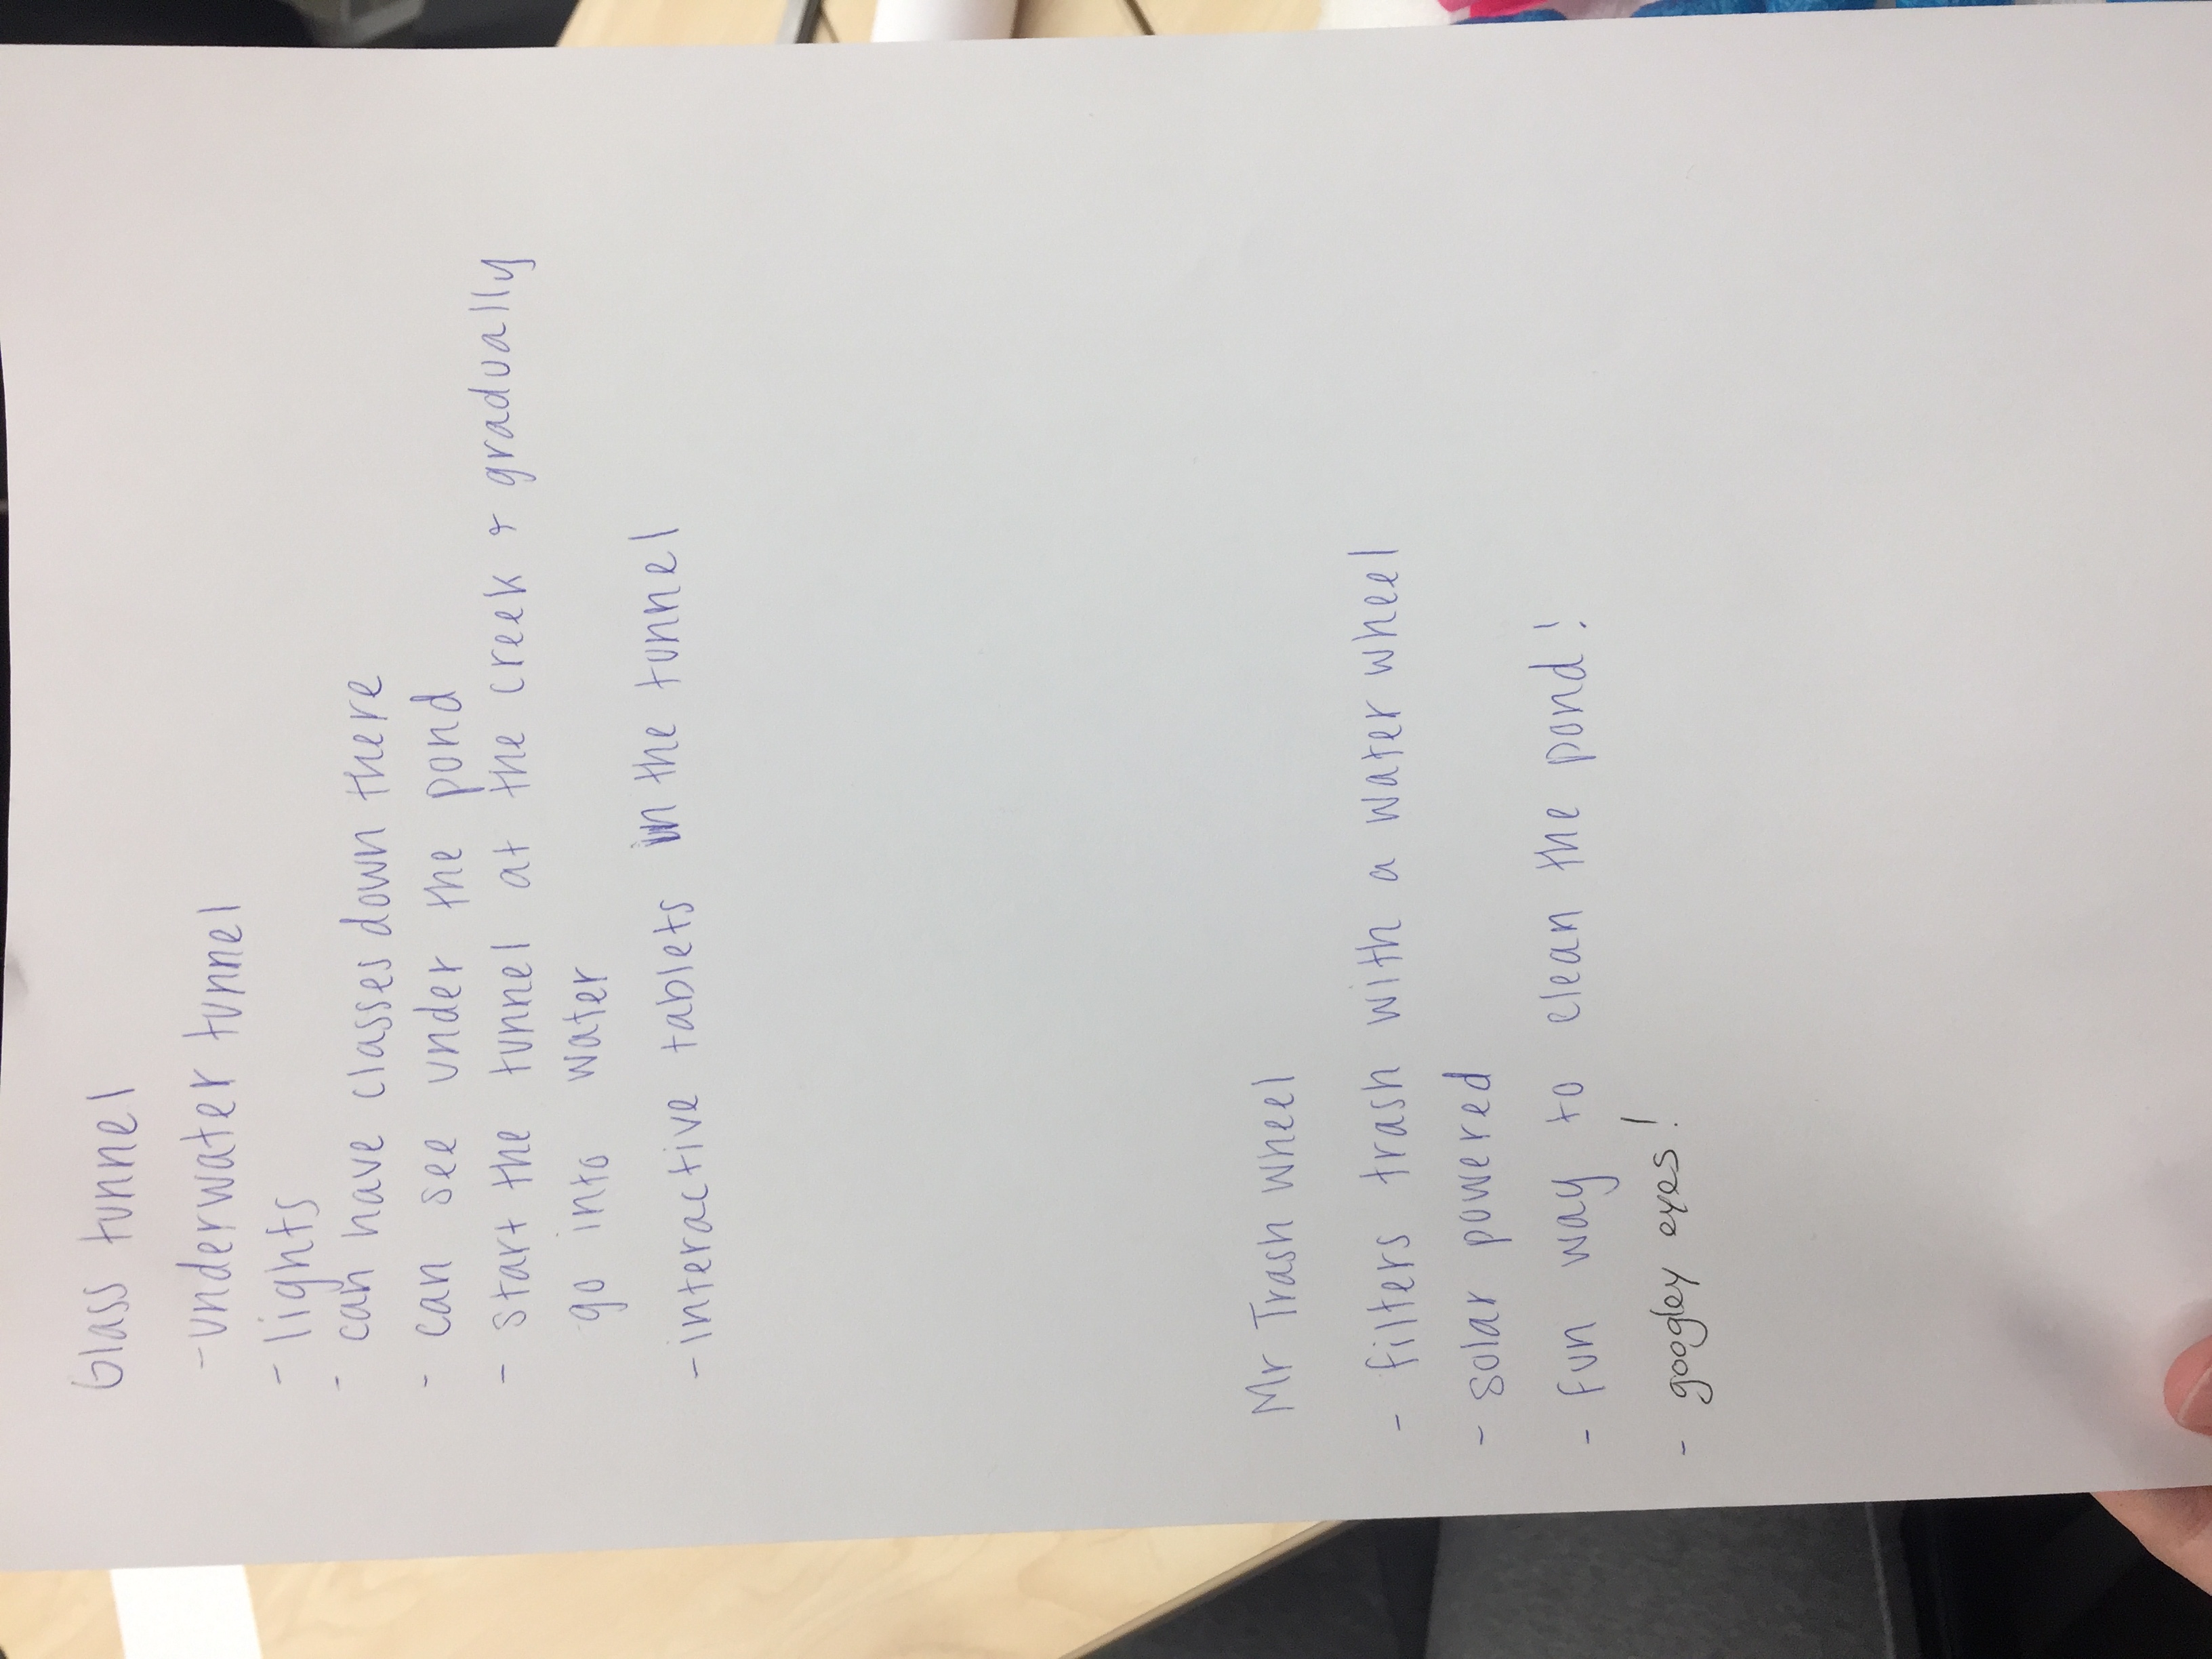 Glass tunnel
- underwater tunnel
- lights
- can have classes down there
- can see under the pond
- start the tunnel at the creek & gradually
go into water
- interactive tablets in the tunnel
Mr Trash Wheel
- filters trash with a water wheel
- solar powered
- fun way to clean the pond!
- googley eyes!